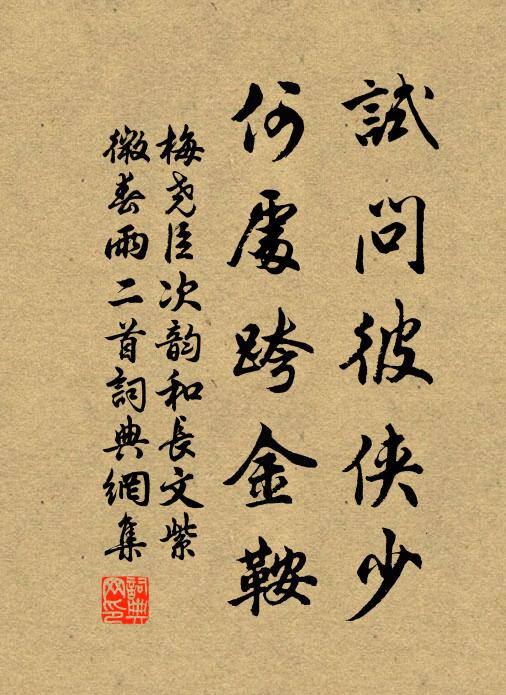 試問彼侠少
何處跨金鞍
梅堯臣次韵和長文紫
微春雨二首詞典網集
詞典
网印